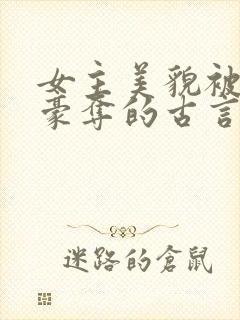 女主美貌被
豪奪的古言
迷路的倉鼠